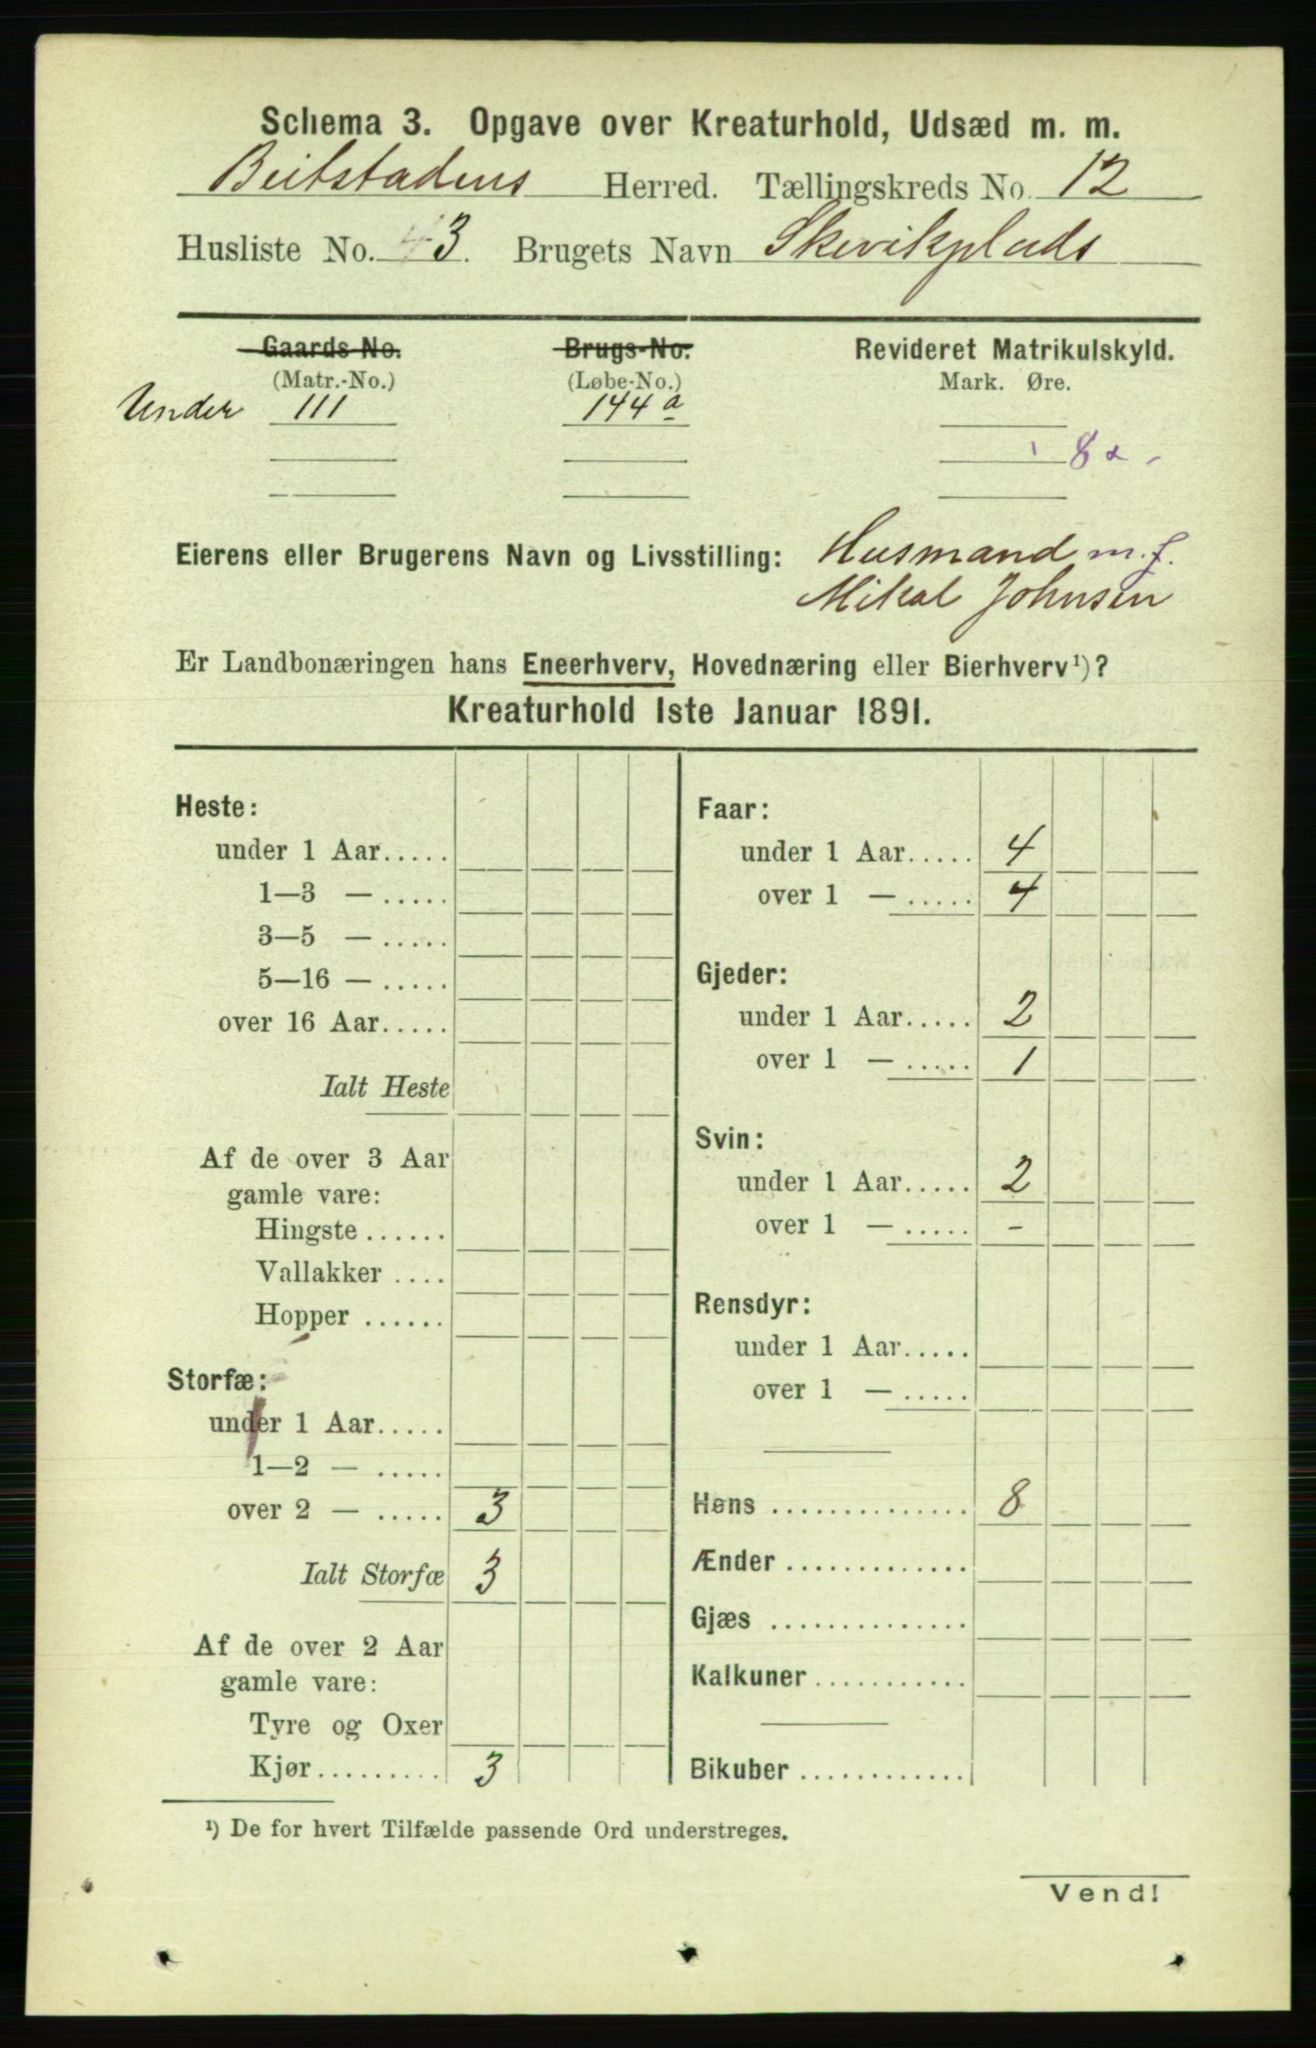 Schema 3. Opgave over Kreaturhold, Udsæd m. m.
Beitstadens Herred. Tællingskreds No. 12
Husliste No. 43. Brugets Navn Skevikplads
Gaards-No. Brugs-No. Revideret Matrikulskyld.
(Matr.-No.) (Løbe-No.) Mark. Øre.
Under 111 144 a
8
Eierens eller Brugerens Navn og Livsstilling: Husmand m. j.
Mikal Johnsen
Er Landbonæringen hans Eneerhverv, Hovednæring eller Bierhverv¹)?
Kreaturhold 1ste Januar 1891.
Heste:
under 1 Aar.....
1—3 — .....
3—5 — .....
5—16 — .....
over 16 Aar.....
Ialt Heste
Af de over 3 Aar
gamle vare:
Hingste ......
Vallakker ....
Hopper ......
Storfæ:
under 1 Aar.....
1—2 — .....
over 2 — ..... 3
Ialt Storfæ 3
Af de over 2 Aar
gamle vare:
Tyre og Oxer
Kjør......... 3
Faar:
under 1 Aar..... 4
over 1 — ..... 4
Gjeder:
under 1 Aar..... 2
over 1 — ..... 1
Svin:
under 1 Aar..... 2
over 1 — ..... -
Rensdyr:
under 1 Aar.....
over 1 — .....
Høns .............. 8
Ænder .............
Gjæs ..............
Kalkuner ...........
Bikuber ............
¹) De for hvert Tilfælde passende Ord understreges.
Vend!